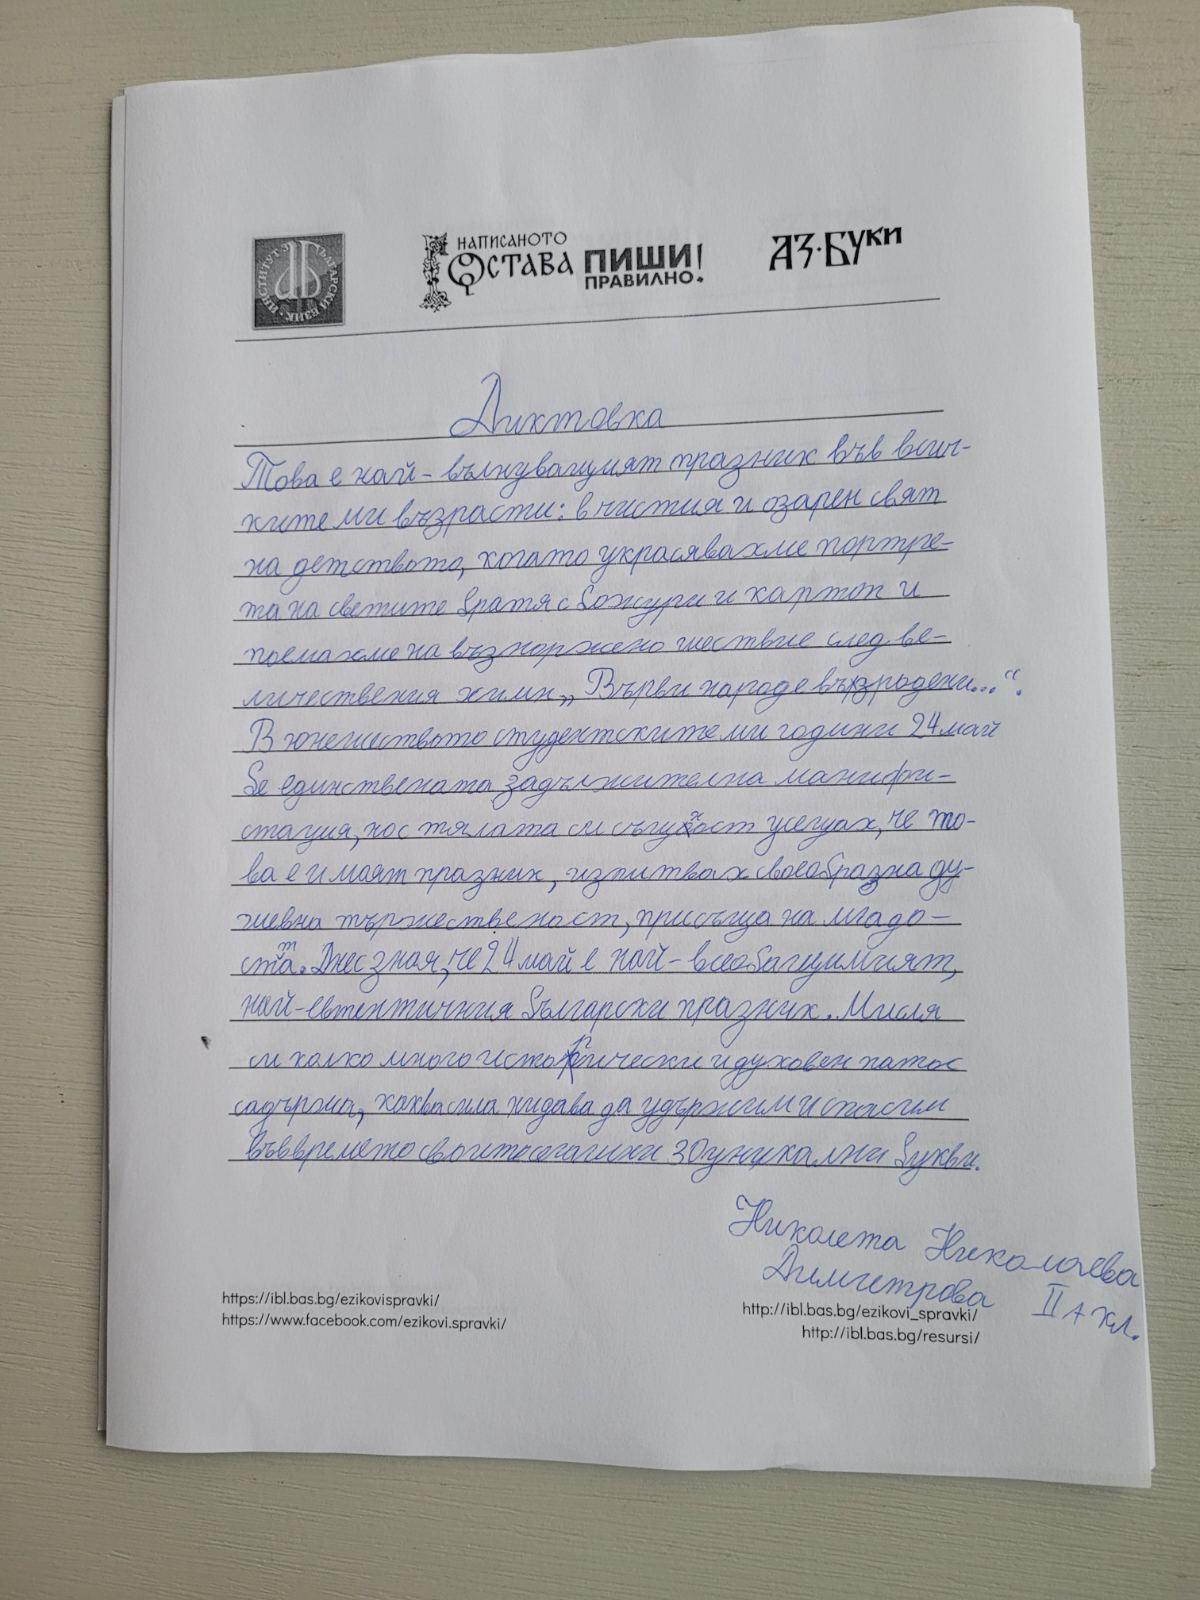 ИНСТИТУТ ЗА БЪЛГАРСКИ ЕЗИК
НАПИСАНОТО
ОСТАВА
ПИШИ
ПРАВИЛНО!
АЗ·БУКИ
Диктовка
Това е най-вълнуващият празник във всич-
ките ми възрасти: в чистия и озарен свят
на детството, когато украсявахме портре-
та на светите братя с божури и картон и
поемахме на възторжено шествие след ве-
личествения химн „Върви народе възродени...“.
В юношеството студентските ми години 24 май
бе единствената задължителна манифи-
стация, но с тялата си същност усещах, че то-
ва е имаят празник, изпитвах своеобразна ду-
шевна тържественост, присъща на младо-
стта. Днес зная, че 24 май е най-всеобагщимият,
най-евтентичния български празник. Мисля
си колко много исторически и духовен патос
садържа, каква сила ни дава да удържим и спасим
във времето своито сегашни 30 уникални букви.
Николета Николаева
Димитрова II А кл.
https://ibl.bas.bg/ezikovispravki/
https://www.facebook.com/ezikovi.spravki/
http://ibl.bas.bg/ezikovi_spravki/
http://ibl.bas.bg/resursi/